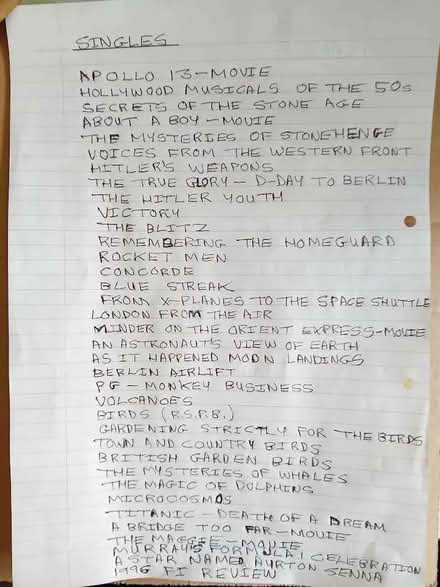 SINGLES
APOLLO 13 – MOVIE
HOLLYWOOD MUSICALS OF THE 50s
SECRETS OF THE STONE AGE
ABOUT A BOY – MOVIE
THE MYSTERIES OF STONEHENGE
VOICES FROM THE WESTERN FRONT
HITLER'S WEAPONS
THE TRUE GLORY – D-DAY TO BERLIN
THE HITLER YOUTH
VICTORY
THE BLITZ
REMEMBERING THE HOMEGUARD
ROCKET MEN
CONCORDE
BLUE STREAK
FROM X-PLANES TO THE SPACE SHUTTLE
LONDON FROM THE AIR
MINDER ON THE ORIENT EXPRESS – MOVIE
AN ASTRONAUT'S VIEW OF EARTH
AS IT HAPPENED MOON LANDINGS
BERLIN AIRLIFT
PG – MONKEY BUSINESS
VOLCANOES
BIRDS (R.S.P.B.)
GARDENING STRICTLY FOR THE BIRDS
TOWN AND COUNTRY BIRDS
BRITISH GARDEN BIRDS
THE MYSTERIES OF WHALES
THE MAGIC OF DOLPHINS
MICROCOSMOS
TITANIC – DEATH OF A DREAM
A BRIDGE TOO FAR – MOVIE
THE MAGGIE – MOVIE
MURRAY'S FORMULA 1 CELEBRATION
A STAR NAMED AYRTON SENNA
1996 F1 REVIEW